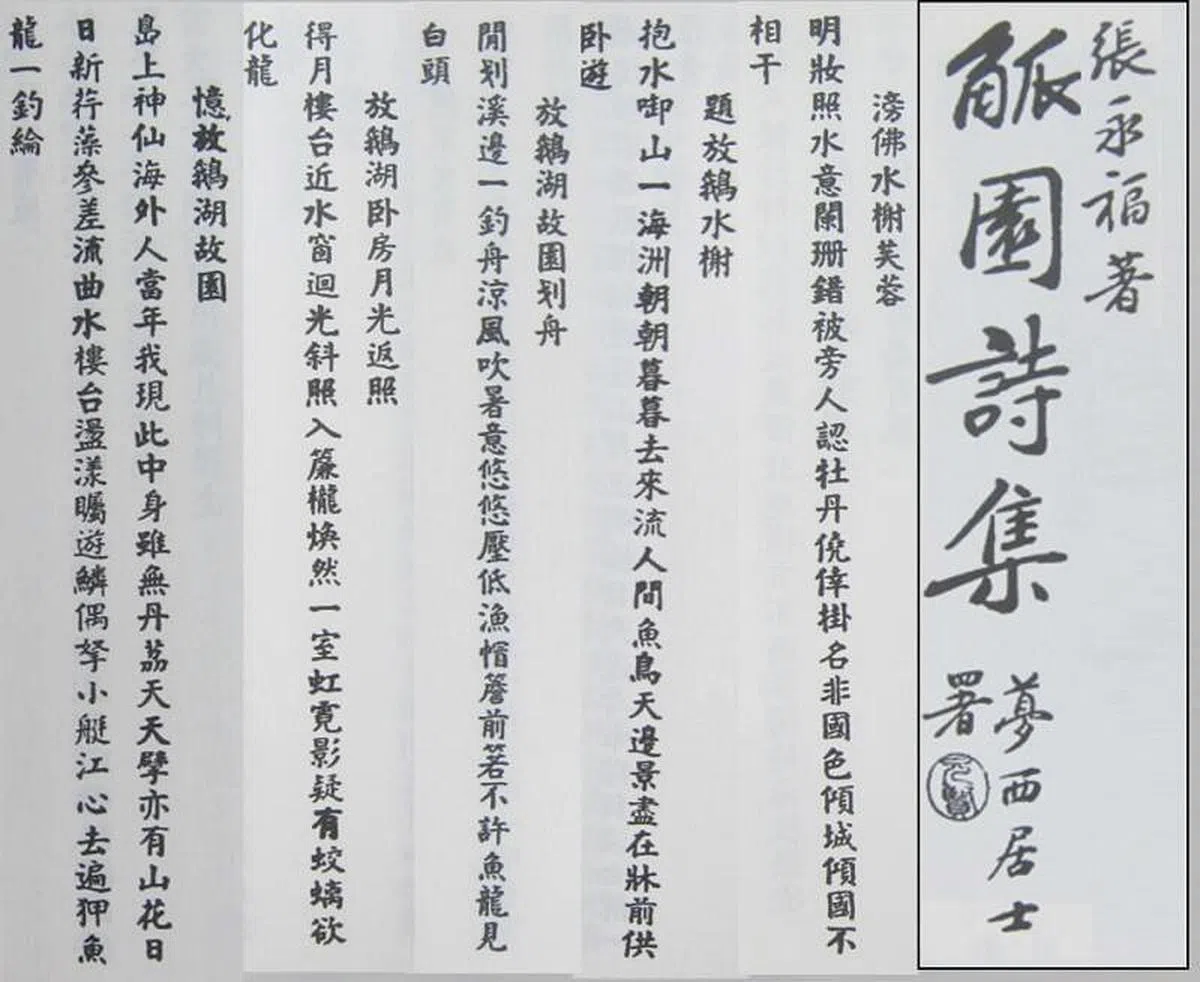 張永福著
觚園詩集
夢西居士
署
滂佛水榭芙蓉
明妝照水意闌珊錯被旁人認牡丹僥倖掛名非國色傾城傾國不
相干
題放鵝水榭
抱水啣山一海洲朝朝暮暮去來流人間魚鳥天邊景盡在牀前供
卧遊
放鵝湖故園划舟
閒划溪邊一釣舟涼風吹暑意悠悠壓低漁帽簷前箬不許魚龍見
白頭
放鵝湖卧房月光返照
得月樓台近水窗迴光斜照入簾櫳煥然一室虹霓影疑有蛟螭欲
化龍
憶放鵝湖故園
島上神仙海外人當年我現此中身雖無丹荔天天擘亦有山花日
日新荇藻參差流曲水樓台盪漾矚遊鱗偶拏小艇江心去遍狎魚
龍一釣綸